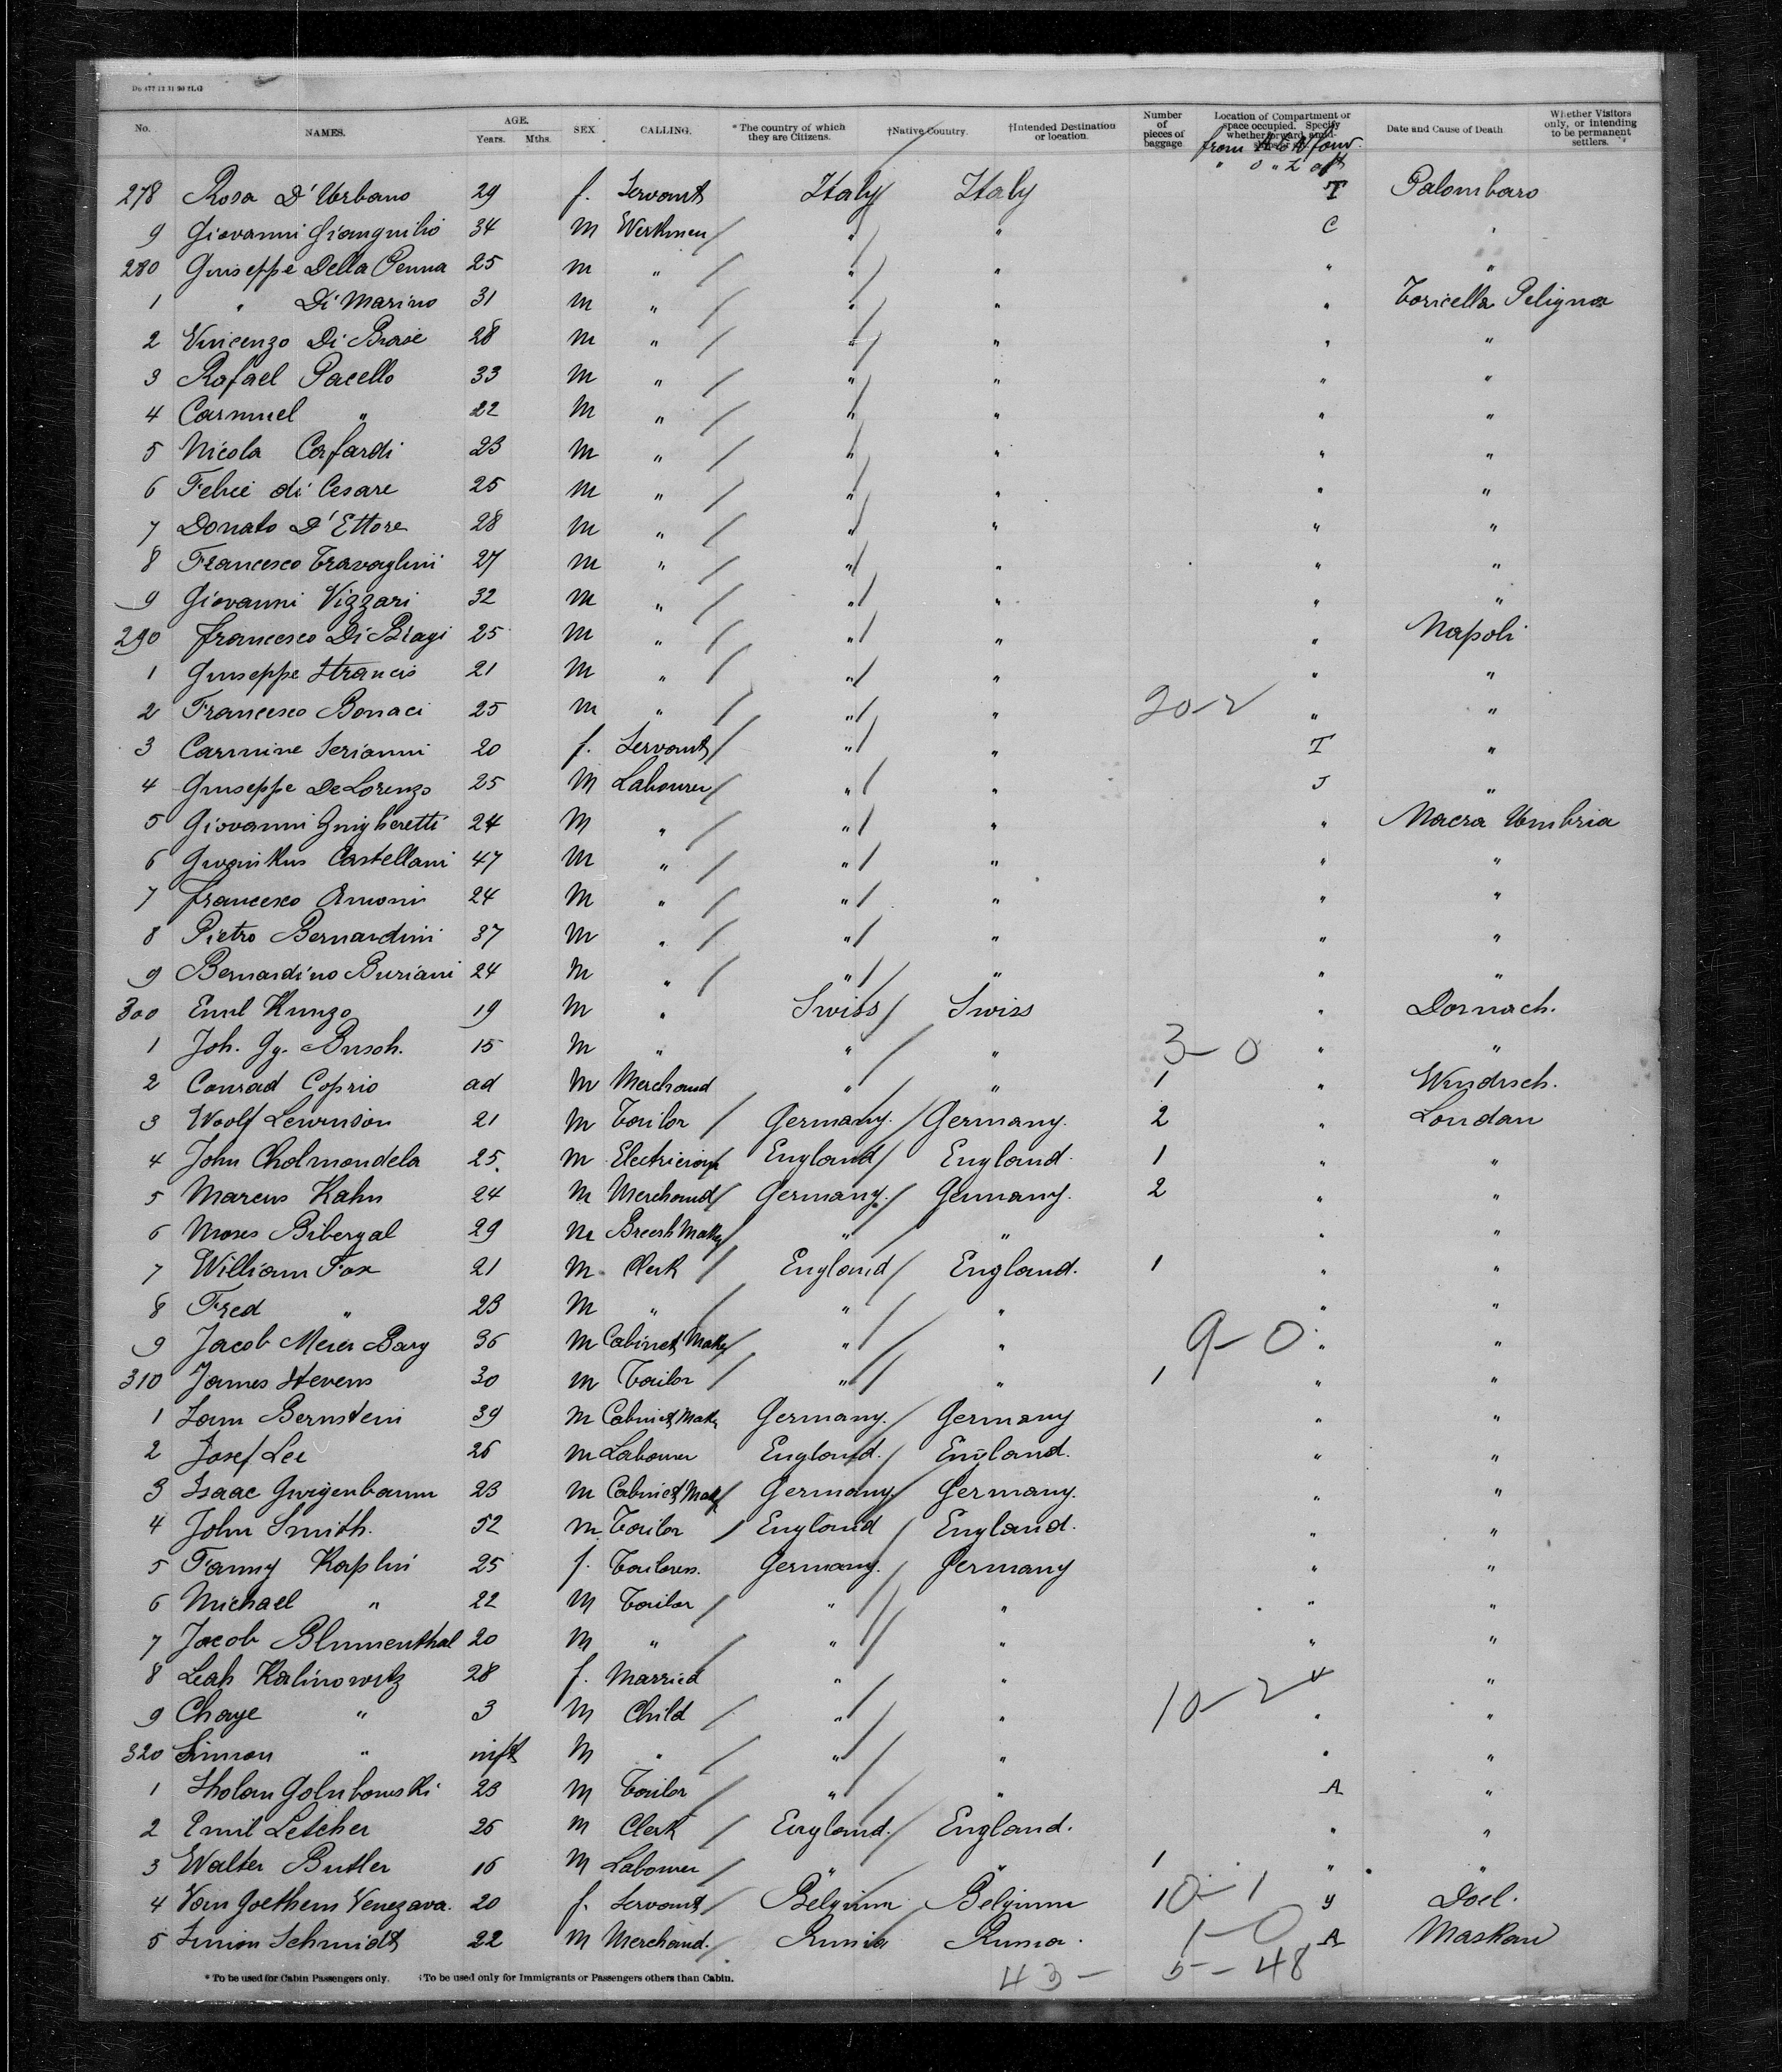 De 477 12 31 90 21.G
No. NAMES. AGE. Years. Mths. SEX. CALLING. *The country of which they are Citizens. †Native Country. †Intended Destination or location. Number of pieces of baggage Location of Compartment or space occupied. Specify whether forward, amid- Date and Cause of Death Whether Visitors only, or intending to be permanent settlers.
from A to N forw.
" O " Z aft
278 Rosa D'Urbano 29 f. Servant Italy Italy T Palombaro
9 Giovanni Gianguilio 34 M Workmen " " C "
280 Giuseppe Della Penna 25 M " " " " "
1 " Di Marino 31 M " " " " Toricella Peligna
2 Vincenzo Di Biase 28 M " " " " "
3 Rafael Pacello 33 M " " " " "
4 Carmuel " 22 M " " " " "
5 Nicola Cafardi 23 M " " " " "
6 Felice di Cesare 25 M " " " " "
7 Donato D'Ettore 28 M " " " " "
8 Francesco Travaglini 27 M " " " " "
9 Giovanni Vizzari 32 M " " " " "
290 Francesco Di Biagi 25 M " " " " Napoli
1 Giuseppe Strancis 21 M " " " " "
2 Francesco Bonaci 25 M " " " 20-2 " "
3 Carmine Serianni 20 f. Servant " " T "
4 Giuseppe De Lorenzo 25 M Labourer " " J "
5 Giovanni Guigheretti 24 M " " " " Macra Umbria
6 Castellani 47 M " " " " "
7 Francesco Amoni 24 M " " " " "
8 Pietro Bernardini 37 M " " " " "
9 Bernardino Buriani 24 M " " " " "
300 Emil Kunzo 19 M " Swiss Swiss " Dornach.
1 Joh. Gg. Busch. 15 M " " " 3-0 " "
2 Conrad Coprio ad M Merchand " " 1 " Windisch.
3 Woolf Lewinson 21 M Tailor Germany. Germany. 2 " London
4 John Cholmondela 25. M Electrician England England. 1 " "
5 Marcus Kahn 24 M Merchand Germany. Germany. 2 " "
6 Moses Bibergal 29 M Breesh Maker " " " "
7 William Fox 21 M Clerk England England. 1 " "
8 Fred " 23 M " " " " "
9 Jacob Meier Barg 36 M Cabinet Maker " " 9-0 " "
310 James Stevens 30 M Tailor " " 1 " "
1 Sam Bernstein 39 M Cabinet Maker Germany. Germany " "
2 Josef Lee 26 M Labourer England. England. " "
3 Isaac Gwigenbaum 23 M Cabinet Maker Germany Germany. " "
4 John Smith. 52 M Tailor England England. " "
5 Fanny Kaplin 25 f. Tailoress. Germany. Germany " "
6 Michael " 22 M Tailor " " " "
7 Jacob Blumenthal 20 M " " " " "
8 Leah Kalinowitz 28 f. Married " " 10-2 "
9 Chaye " 3 M Child " " " "
320 Simon " inft M " " " " "
1 Sholan Golubowski 23 M Tailor " " A "
2 Emil Letcher 26 M Clerk England. England. " "
3 Walter Butler 16 M Labourer " " 1 " "
4 Van Goethem Venezava. 20 f. Servant Belgium Belgium 10-1 y Doel.
5 Simion Schmidt 22 M Merchand. Russia Russia. 1-0 A Maskau
*To be used for Cabin Passengers only. †To be used only for Immigrants or Passengers others than Cabin.
43- 5-48